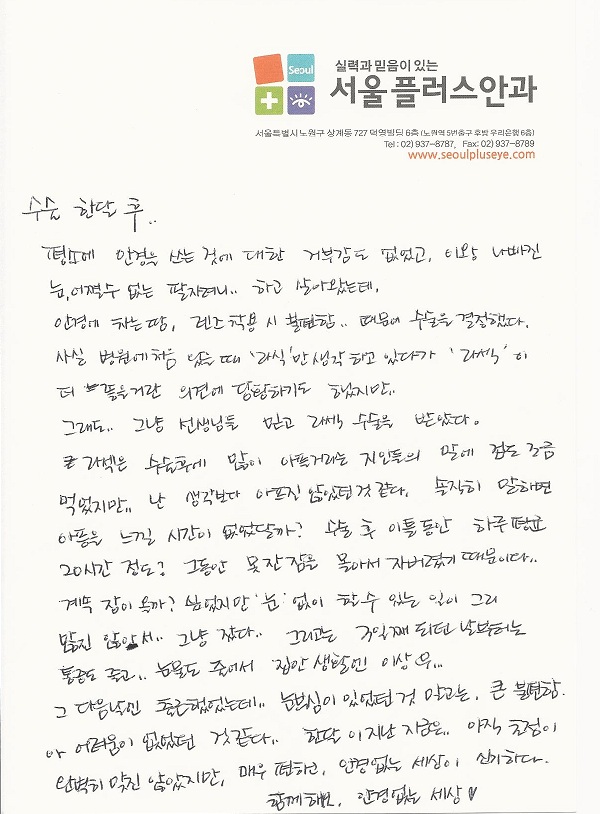 Seoul
실력과 믿음이 있는
서울플러스안과
서울특별시 노원구 상계동 727 덕영빌딩 6층 (노원역 5번출구 후방 우리은행 6층)
Tel : 02) 937-8787, Fax: 02) 937-8789
www.seoulpluseye.com
수술 한달 후..
평소에 안경을 쓰는 것에 대한 거부감도 없었고, 이왕 나빠진
눈, 어쩔수 없는 팔자려니.. 하고 살아왔는데,
안경에 차는 땀, 렌즈 착용 시 불편함.. 때문에 수술을 결정했다.
사실 병원에 처음 왔을 때 '라식'만 생각하고 있다가 '라섹'이
더 좋을거란 의견에 당황하기도 했지만..
그래도.. 그냥 선생님들 믿고 라섹 수술을 받았다.
라섹은 수술후에 많이 아프거라는 지인들의 말에 겁도 조금
먹었지만.. 난 생각보다 아프진 않았던것 같다. 솔직히 말하면
아픔을 느낄 시간이 없었달까? 수술 후 이틀동안 하루 평균
20시간 정도? 그동안 못잔 잠을 몰아서 자버렸기 때문이다..
계속 잠이 올까? 싶었지만 '눈' 없이 할 수 있는 일이 그리
많진 않아서.. 그냥 잤다.. 그리고는 3일째 되던 날부터는
통증도 줄고.. 눈물도 줄어서 집안 생활엔 이상 무...
그 다음날엔 출근했었는데.. 눈부심이 있었던 것 말고는, 큰 불편함.
이나 어려움이 없었던 것 같다.. 한달이 지난 지금은.. 아직 초점이
완벽히 맞진 않았지만, 매우 편하고, 안경없는 세상이 신기하다.
함께해요, 안경없는 세상♥